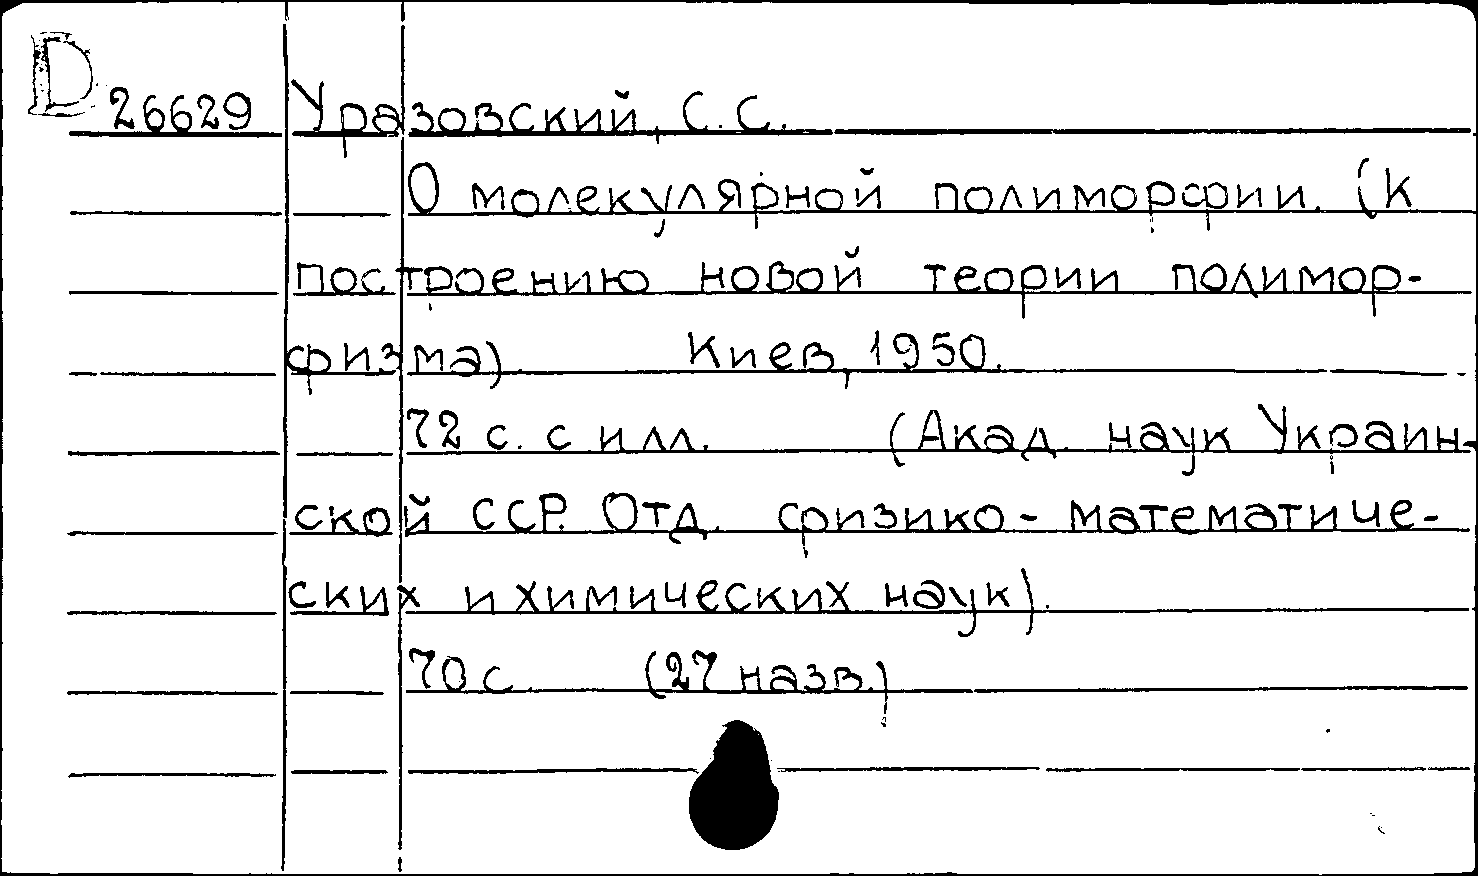 D 26629 Уразовский, С.С.
О молекулярной полиморфии. (К
построению новой теории полимор-
физма) Киев, 1950.
72 с. с илл. (Акад. наук Украин-
ской ССР. Отд. физико-математиче-
ских и химических наук).
70 с. (27 назв.)